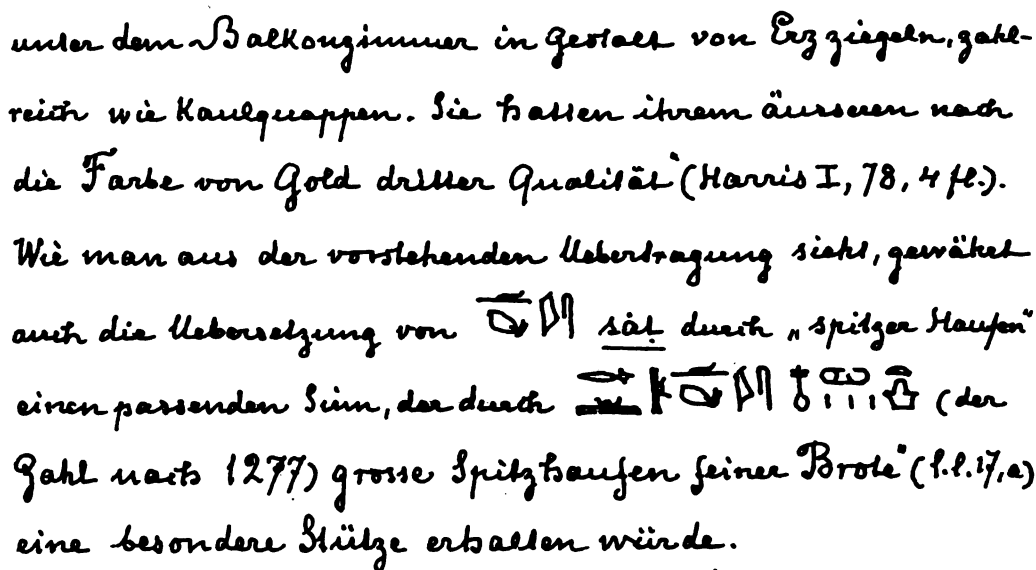 unter dem Balkonzimmer in Gestalt von Erzziegeln, zahl-
reich wie Kaulquappen. Sie hatten ihrem äusseren nach
die Farbe von Gold dritter Qualität" (Harris I, 78, 4 fl.).
Wie man aus der vorstehenden Uebertragung sieht, gewährt
auch die Uebersetzung von śȧt durch „spitzer Haufen"
einen passenden Sinn, der durch (der
Zahl nach 1277) grosse Spitzhaufen feiner Brote" (l.l. 17, a)
eine besondere Stütze erhalten würde.